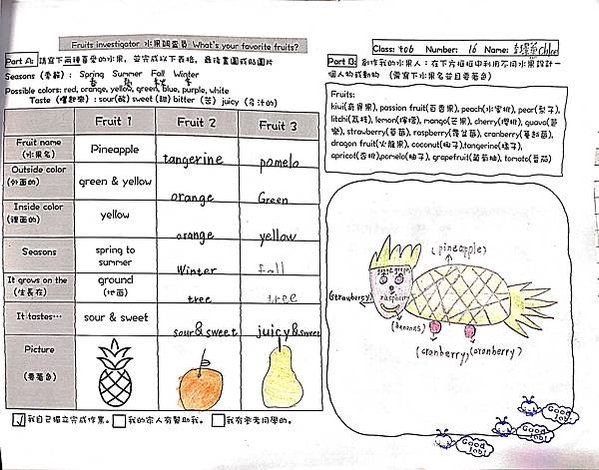 Fruits investigator 水果調查員 What's your favorite fruits?
Class: 406 Number: 16 Name: Chloe
Part A: 請寫下兩種喜愛的水果，並完成以下表格，最後畫圖或貼圖片
Seasons (季節): Spring Summer Fall Winter
春 夏 秋 冬
Possible colors: red, orange, yellow, green, blue, purple, white
Taste (嚐起來): sour(酸) sweet (甜) bitter (苦) juicy (多汁的)
Fruit 1 Fruit 2 Fruit 3
Fruit name (水果名) Pineapple tangerine pomelo
Outside color (外面的) green & yellow orange Green
Inside color (裡面的) yellow orange yellow
Seasons spring to summer Winter fall
It grows on the (生長在) ground (地面) tree tree
It tastes… sour & sweet sour & sweet juicy & sweet
Picture (要著色)
√ 我自己獨立完成作業。 我的家人有幫助我。 我有參考同學的。
Part B: 創作我的水果人：在下方框框中利用不同水果設計一
個人物或動物 (需寫下水果名並且要著色)
Fruits:
kiwi(奇異果), passion fruit(百香果), peach(水蜜桃), pear(梨子),
litchi(荔枝), lemon(檸檬), mango(芒果), cherry(櫻桃), guava(芭
樂), strawberry(草莓), raspberry(覆盆莓), cranberry(蔓越莓),
dragon fruit(火龍果), coconut(椰子), tangerine(橘子),
apricot(杏桃), pomelo(柚子), grapefruit(葡萄柚), tomato(番茄)
(pineapple)
(strawberry)
raspberry
(bananas)
(cranberry) (cranberry)
Good Job!
Good Job!
Good Job!